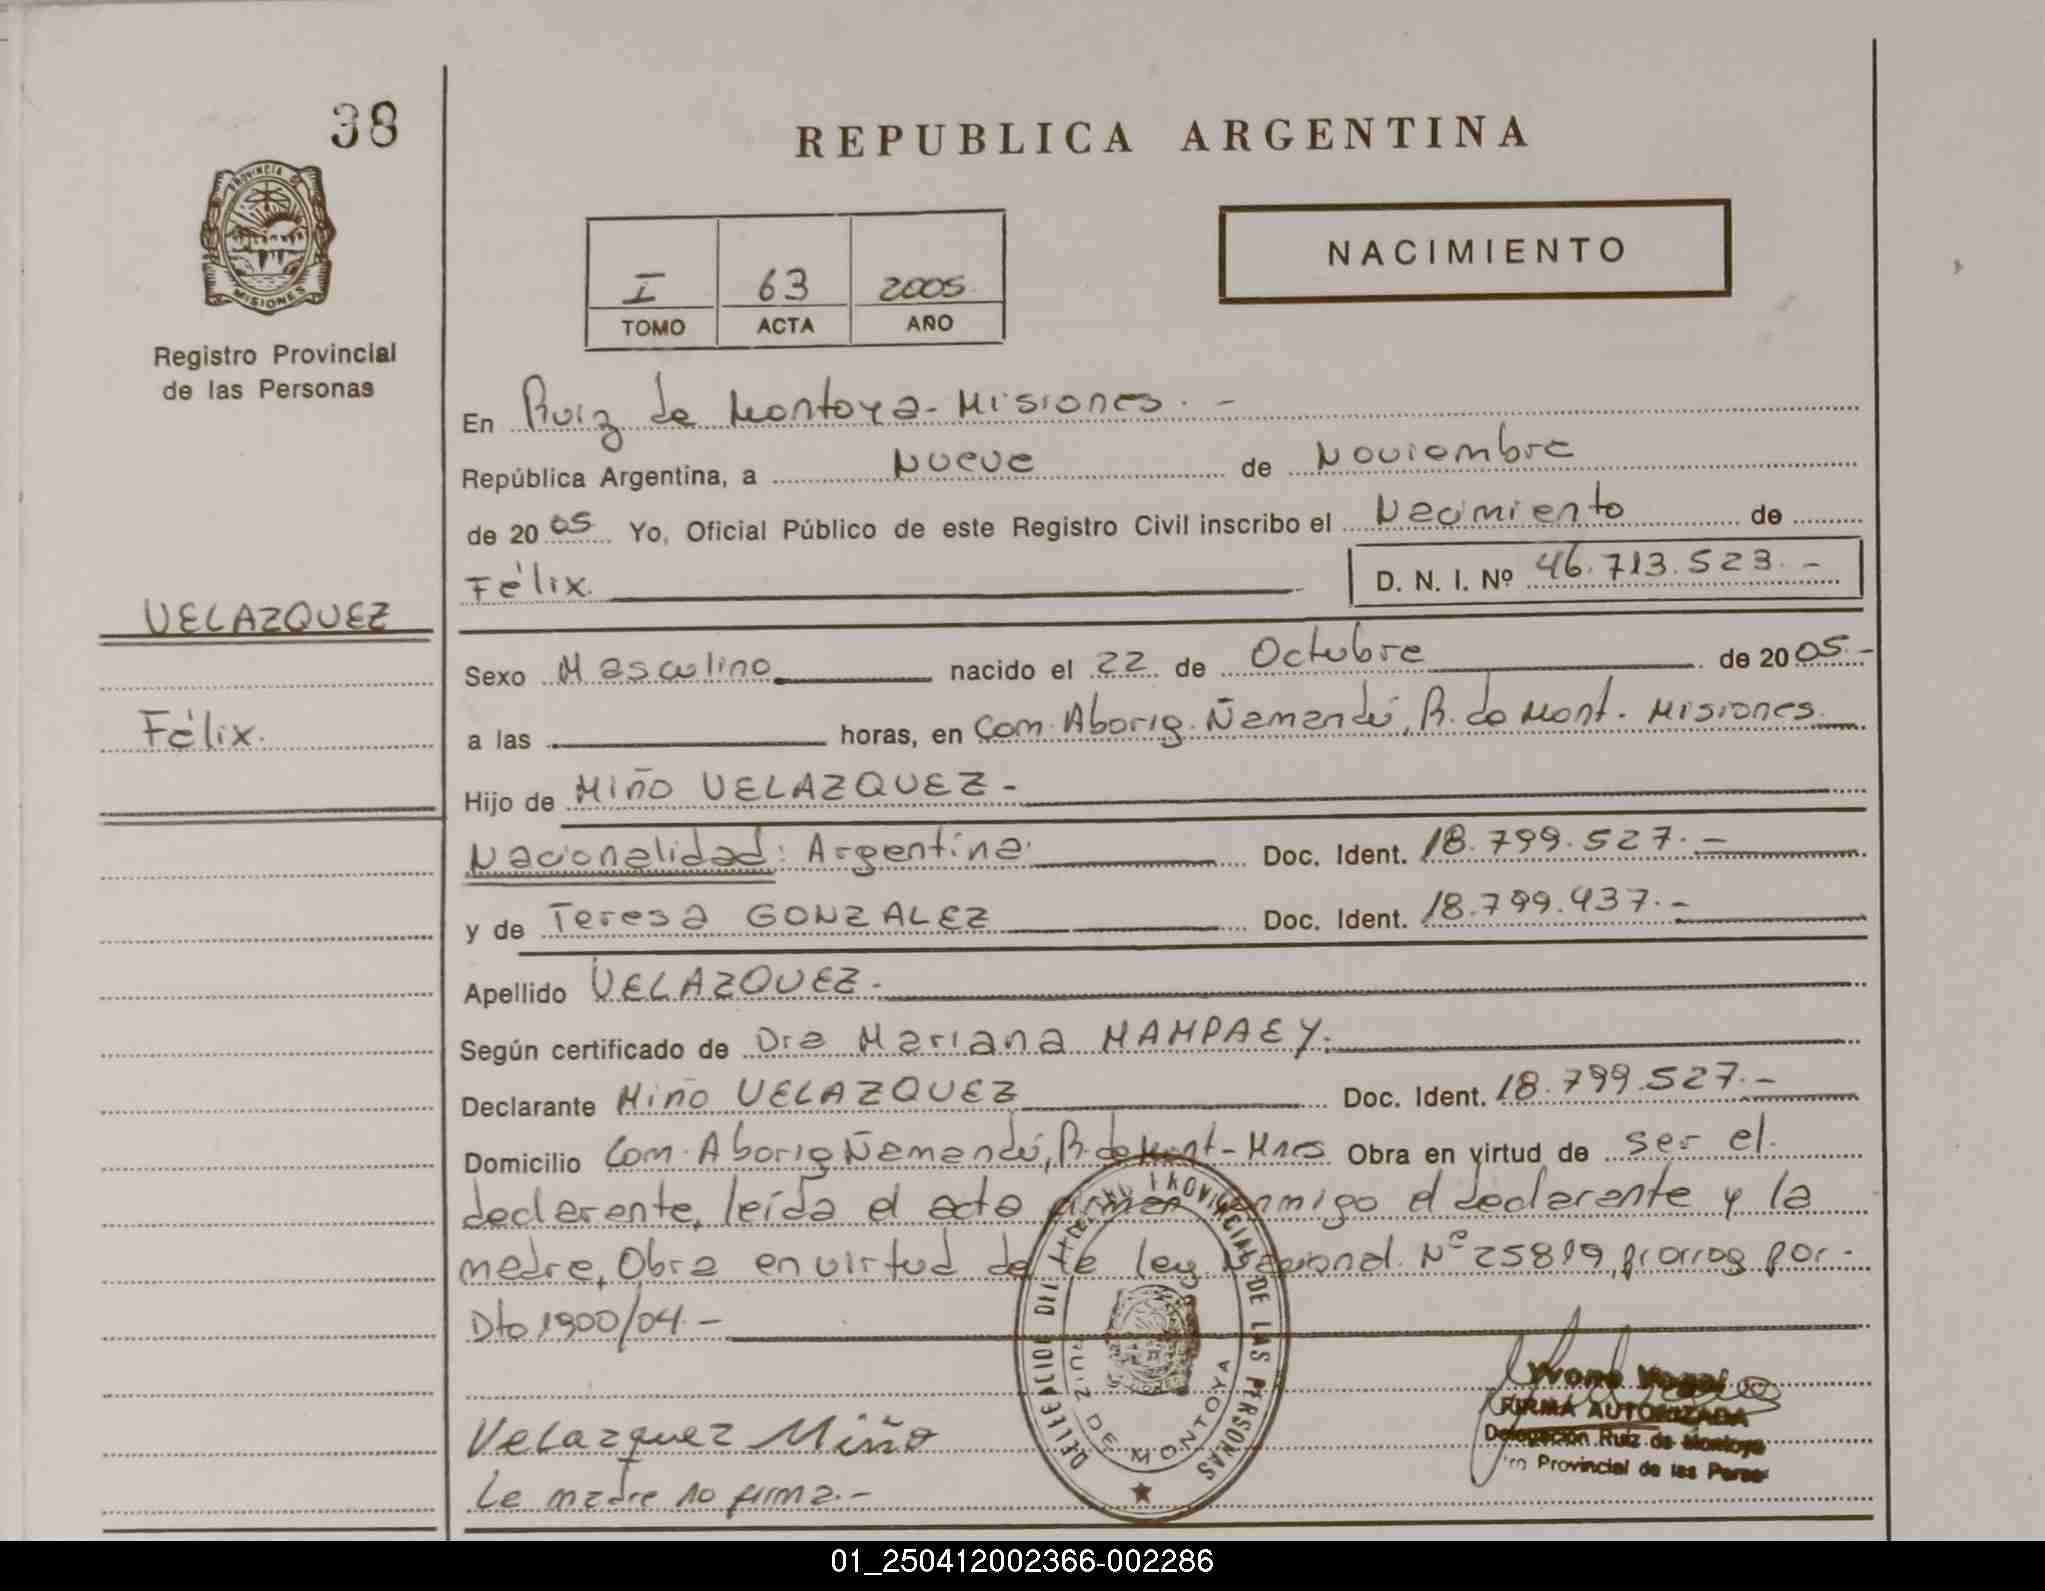 38
REPUBLICA ARGENTINA
PROVINCIA DE
MISIONES
NACIMIENTO
I 63 2005
TOMO ACTA AÑO
Registro Provincial
de las Personas
En Ruiz de Montoya - Misiones. -
República Argentina, a Nueve de Noviembre
de 2005 Yo, Oficial Público de este Registro Civil inscribo el Nacimiento de
Félix. D. N. I. Nº 46.713.523. -
VELAZQUEZ
Sexo Masculino nacido el 22 de Octubre de 2005.-
Félix.
a las horas, en Com. Aborig. Ñamandú, R. de Mont. Misiones.
Hijo de Miño VELAZQUEZ -
Nacionalidad: Argentina. Doc. Ident. 18.799.527.-
y de Teresa GONZALEZ Doc. Ident. 18.799.437.-
Apellido VELAZQUEZ.
Según certificado de Dra Mariana MAMPAEY.
Declarante Miño VELAZQUEZ Doc. Ident. 18.799.527.-
Domicilio Com. Aborig Ñamandú, R. de Mont - Mnes Obra en virtud de ser el
declarante, leída el acta firman conmigo el declarante y la
madre, Obra en virtud de la ley Nacional Nº 25819, prorrog por
Dto 1900/04.-
Velazquez Miño
La madre no firma.-
DE LAS PERSONAS
RUIZ DE MONTOYA
FIRMA AUTORIZADA
Delegación Ruiz de Montoya
Provincial de las
01_250412002366-002286